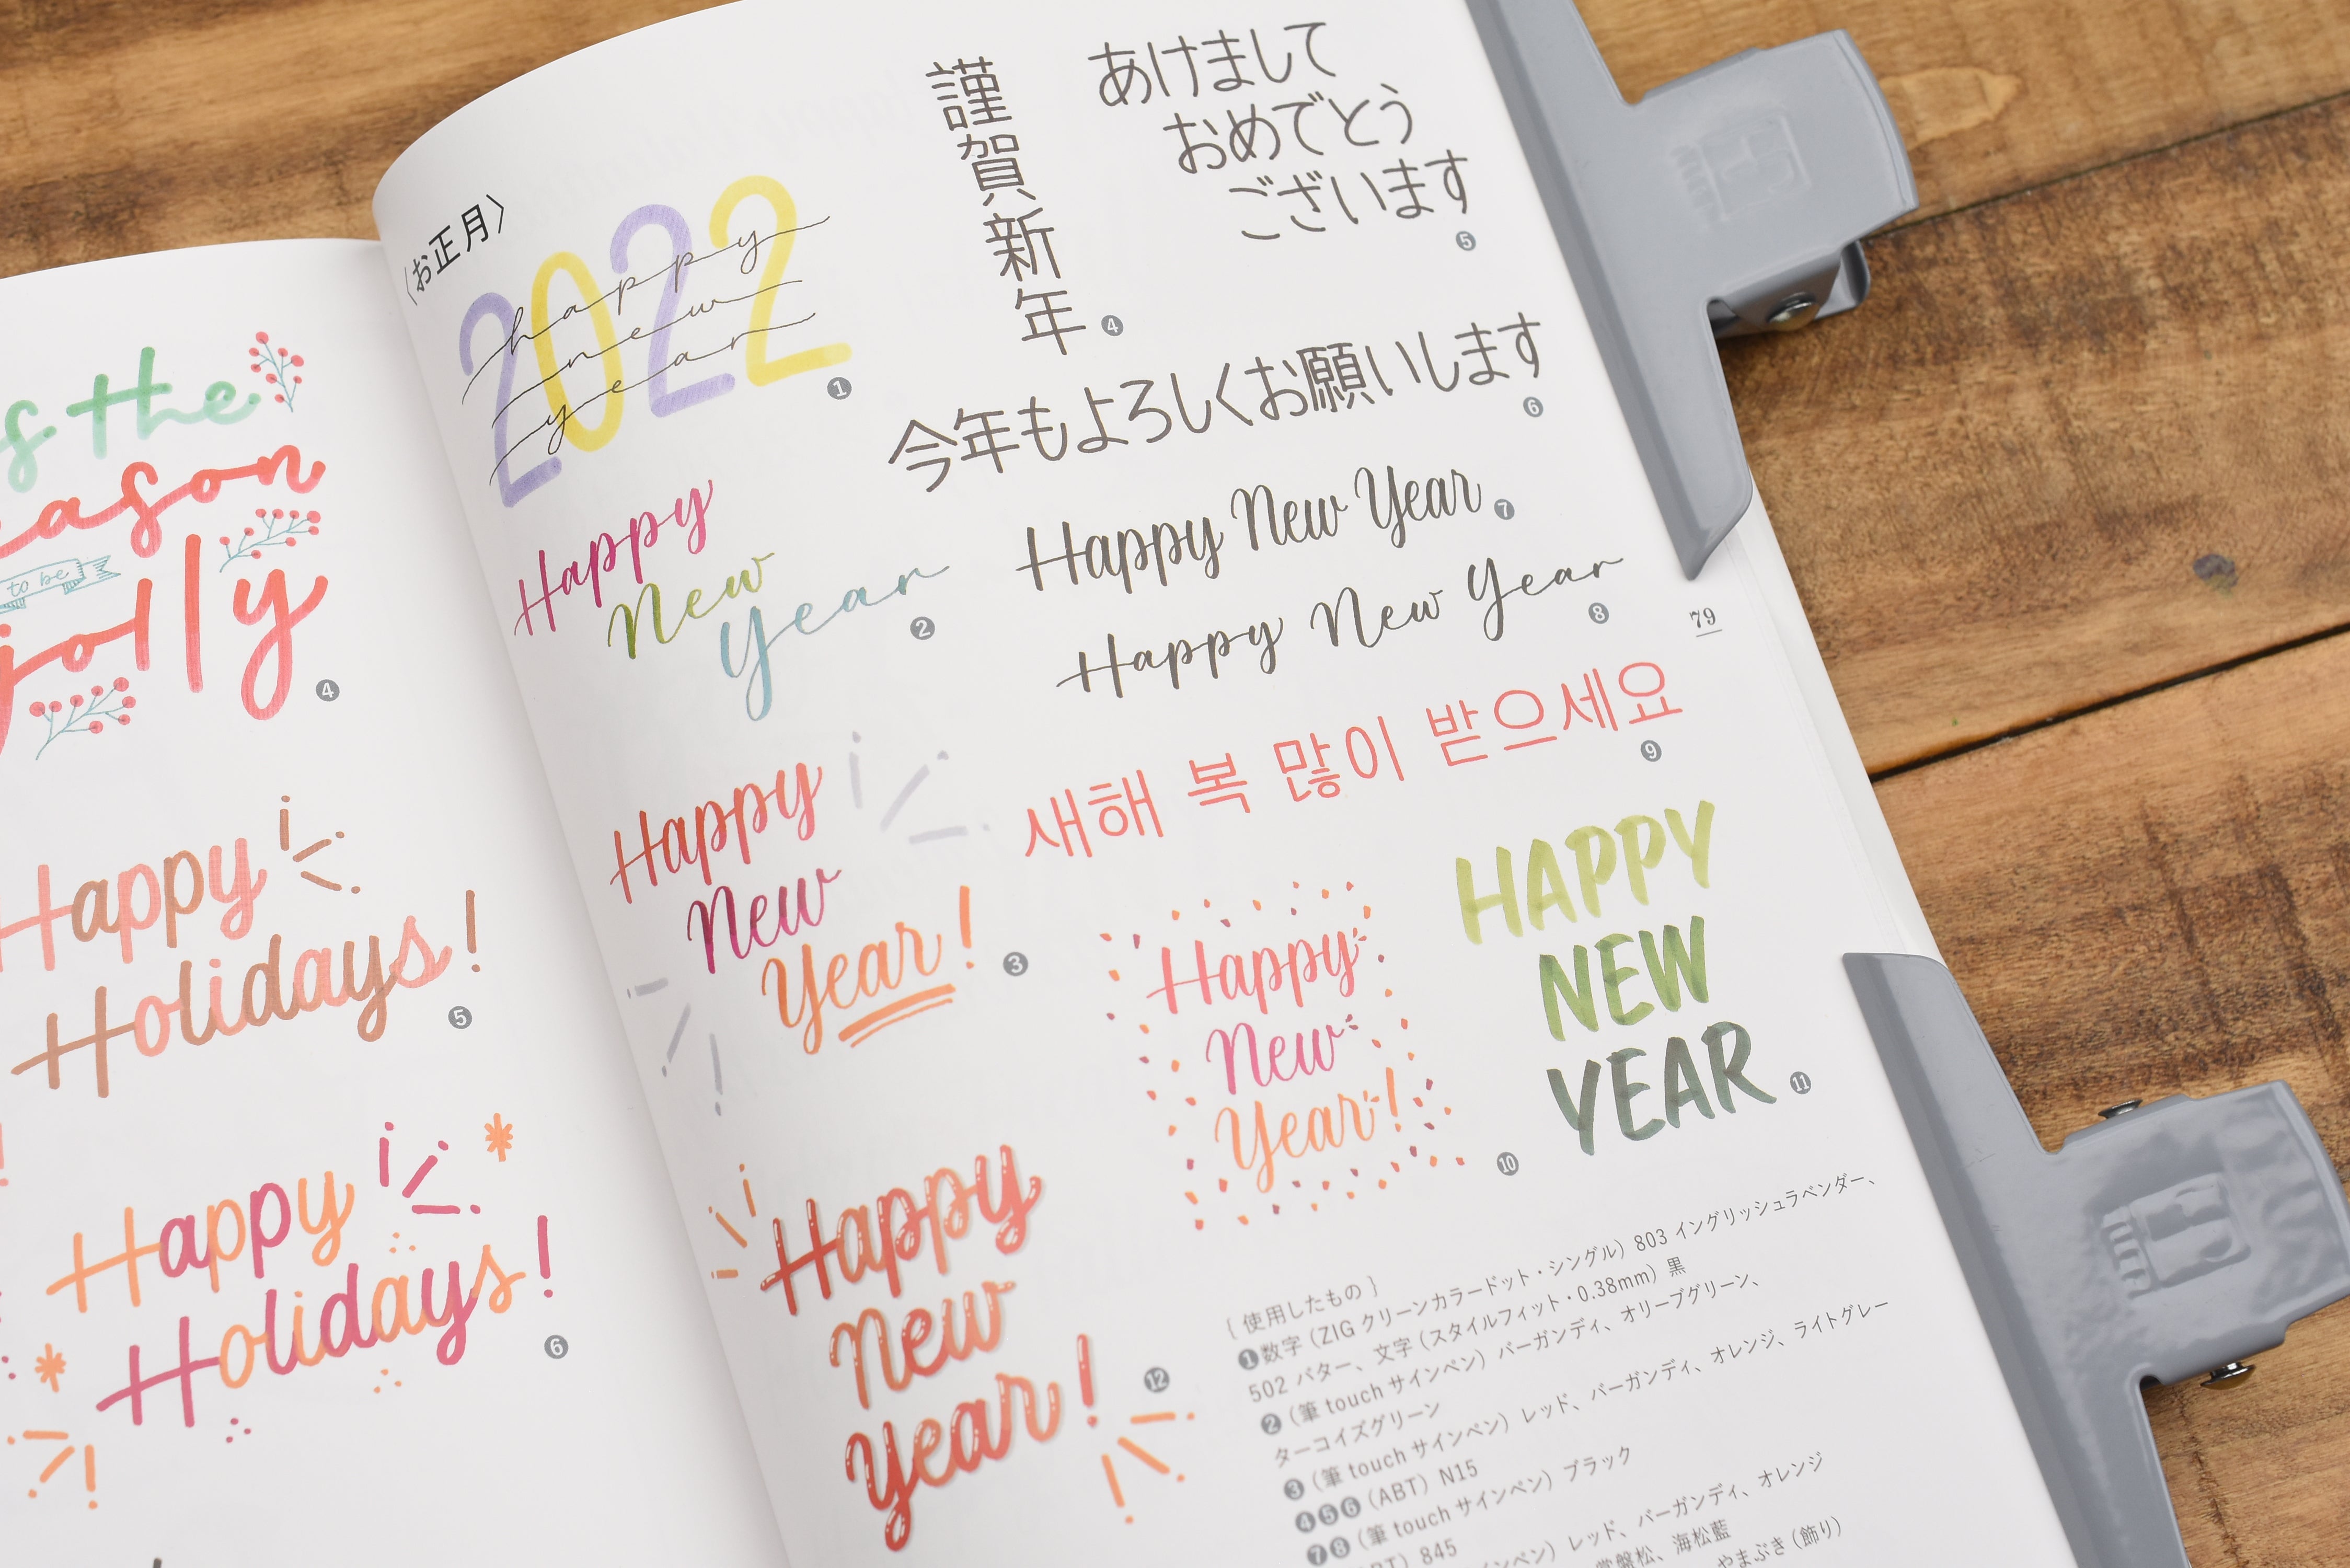 s the
eason
to be
jolly
4
Happy
Holidays!
5
Happy
Holidays!
6
〈お正月〉
2022
happy
new
year
1
Happy
New
Year
2
Happy
New
Year!
3
謹賀新年
4
あけまして
おめでとう
ございます
5
今年もよろしくお願いします
6
Happy New Year
7
Happy New Year
8
79
새해 복 많이 받으세요
9
Happy
New
Year!
10
HAPPY
NEW
YEAR
11
Happy
New
Year!
12
{ 使用したもの }
❶数字（ZIG クリーンカラードット・シングル）803 イングリッシュラベンダー、
502 バター、文字（スタイルフィット・0.38mm）黒
❷（筆 touch サインペン）バーガンディ、オリーブグリーン、
ターコイズグリーン
❸（筆 touch サインペン）レッド、バーガンディ、オレンジ、ライトグレー
❹❺❻（ABT）N15
❼❽（筆 touch サインペン）ブラック
845
レッド、バーガンディ、オレンジ
常盤松、海松藍
やまぶき（飾り）